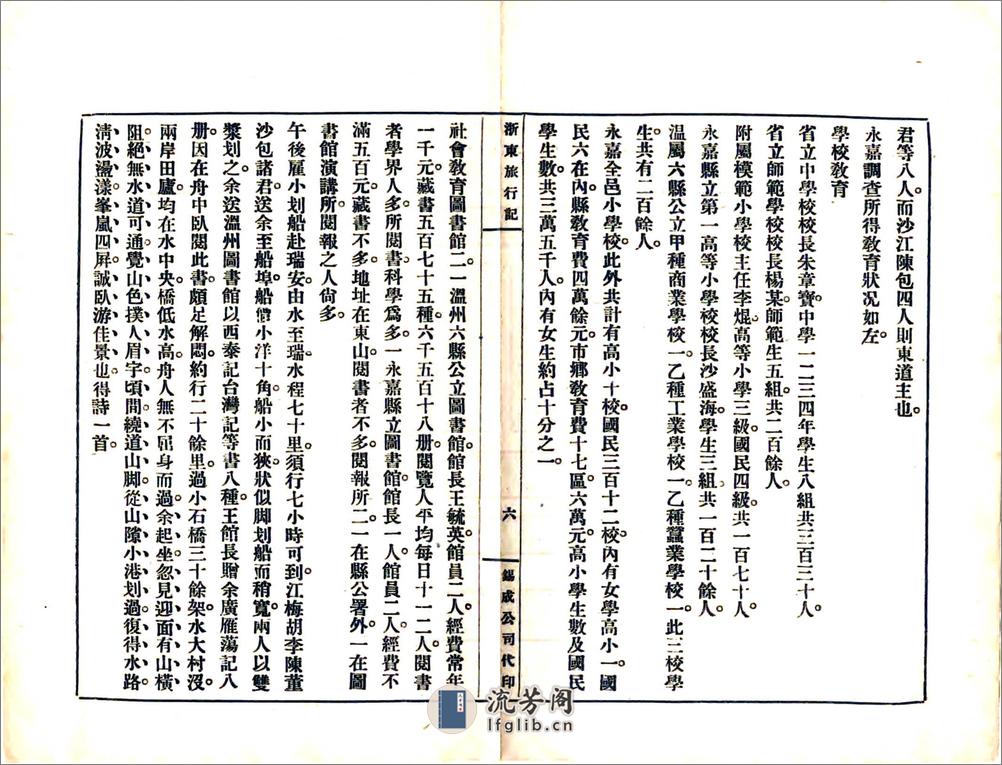 君等八人。而沙江陳包四人則東道主也。
永嘉調查所得教育狀況如左。
學校教育
省立中學校校長朱章寶。中學一二三四年學生八組共三百三十人。
省立師範學校校長楊某。師範生五組。共二百餘人。
附屬模範小學校主任李焜。高等小學三級。國民四級。共一百七十人。
永嘉縣立第一高等小學校校長沙盛海。學生三組共一百二十餘人。
溫屬六縣公立甲種商業學校一。乙種工業學校一。乙種蠶業學校一。此三校學
生。共有二百餘人。
永嘉全邑小學校。此外共計有高小十校。國民三百十二校。內有女學高小一。國
民六在內。縣教育費四萬餘元。市鄉教育費十七區六萬元。高小學生數及國民
學生數。共三萬五千人。內有女生約占十分之一。
浙東旅行記
六
錫成公司代印
社會教育圖書館二。一溫州六縣公立圖書館。館長王毓英。館員二人。經費常年
一千元。藏書五百七十五種。六千五百十八册。閱覽人平均每日十一二人。閱書
者學界人多。所閱書科學爲多。一永嘉縣立圖書館。館長一人。館員二人。經費不
滿五百元。藏書不多。地址在東山。閱書者不多。閱報所二。一在縣公署外。一在圖
書館演講所。閱報之人尙多。
午後雇小划船赴瑞安。由水至瑞。水程七十里。須行七小時可到。江梅胡李陳董
沙包諸君。送余至船埠。船價小洋十角。船小而狹。狀似脚划船而稍寬。兩人以雙
槳划之。余送溫州圖書館以西泰記台灣記等書八種。王館長贈余廣雁蕩記八
册。因在舟中臥閱此書。頗足解悶。約行二十餘里。過小石橋三十餘架。水大村沒。
兩岸田廬。均在水中央。橋低水高。舟人無不屈身而過。余起坐。忽見迎面有山橫
阻。絕無水道可通。覺山色撲人眉宇。頃間繞道山脚。從山隙小港划過。復得水路。
淸波盪漾。峯嵐四屏。誠臥游佳景也。得詩一首。
流芳阁
lfglib.cn